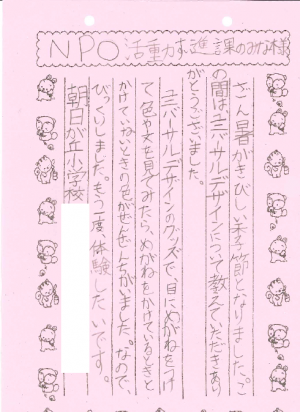 NPO活動推進課のみな様
ざん暑がきびしい季節となりました。こ
の間は、ユニバーサルデザインについて教えていただきあり
がとうございました。
ユニバーサルデザインのグッズで、目にめがねをつけ
て色や文を見てみたら、めがねをかけているときと
かけていないときの色がぜんぜんちがいました。なので
びっくりしました。もう一度、体験したいです。
朝日が丘小学校